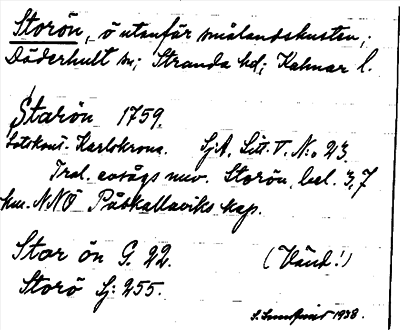 Storön, ö utanför smålandskusten;
Döderhult sn; Stranda hd; Kalmar l.
Starön 1759.
Lotskont. Karlskrona. SjA, Litt. V. No. 23.
Trol. avsågs nuv. Storön, bel. 3,7
km. NNÖ Påskallaviks kap.
Stor ön G. 22.
(Vänd!)
Storö Sj: 255.
1938.